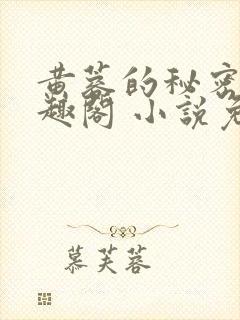 黄蓉的秘密
趣阁 小說免
慕芙蓉